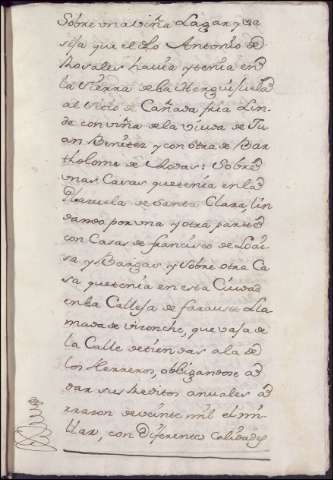 Sobre una viña Lagar y Ca
sa que el Lo Antonio de
havia y tenia en
la tierra de la
al Sitio de Cañada fria Lin
de con viña de la Viuda de Ju
an Benitez y con otra de Bar
tholome de Rodas: Sobre
unas Casas que tenia en la
Plazuela de Santa Clara, lin
dando por una y otra parte
con Casas de francisco de Loai
sa y Bargas y Sobre otra Ca
sa que tenia en esta Ciudad
en la Calleja de Lla
mada de que vaja de
la Calle de tiendas a la de
los Herreros, obligandose a
dar sus Reditos anuales a
rrazon de veinte mil el mi
llar, con diferentes Calidades